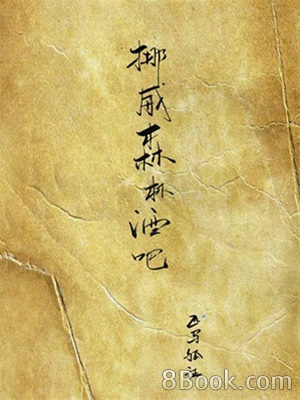 挪威森林酒吧
8Book.com